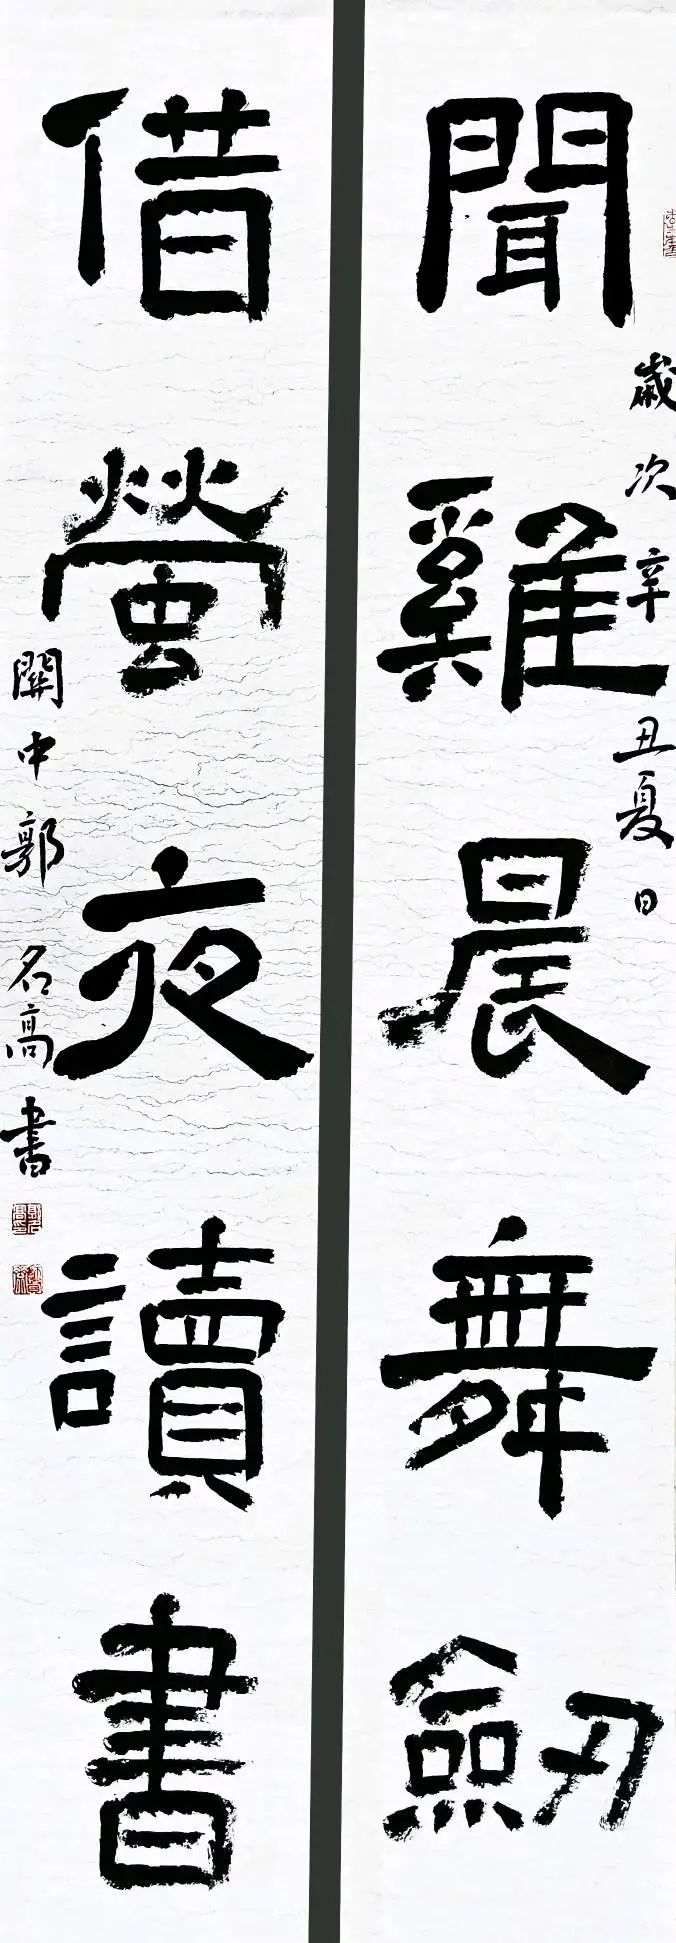 聞雞晨舞劔
歲次辛丑夏日
借螢夜讀書
關中郭名高書